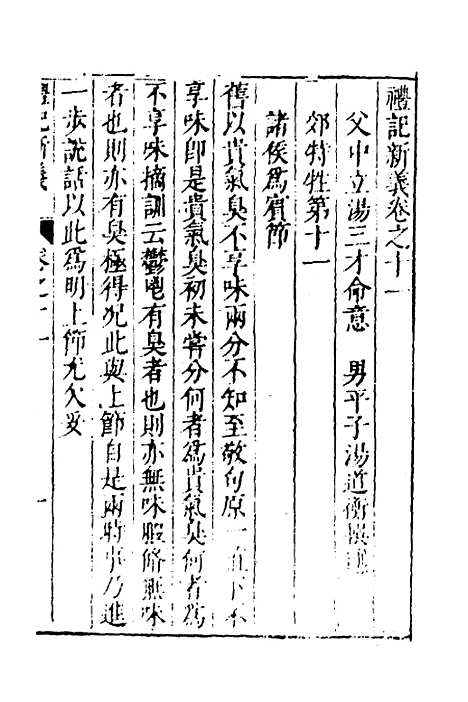 禮記新義卷之十一
父中立湯三才命意　男平子湯道衡撰述
郊特牲第十一
諸侯爲賓節
舊以貴氣臭不享味兩分不知至敬句原一直下不
享味卽是貴氣臭初未嘗分何者爲貴氣臭何者爲
不享味摘訓云鬱鬯有臭者也則亦無味腶脩無味
者也則亦有臭極得况此與上節自是兩時事乃進
一步說話以此爲明上節尤欠妥
禮記新義
卷之十一
一